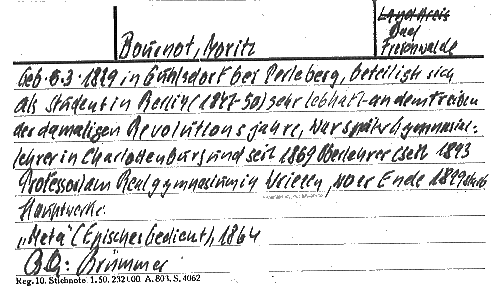 Landkreis
Bad
Freienwalde
Bournot, Moritz
Geb. 6.3.1829 in Gühlsdorf bei Perleberg, beteiligt sich
als Student in Berlin (1847-50) sehr lebhaft an dem Treiben
der damaligen Revolutionsjahre, war später Gymnasial-
lehrer in Charlottenburg und seit 1869 Oberlehrer (seit 1893
Professor) am Realgymnasium in Wriezen, wo er Ende 1899 starb
Hauptwerk:
„Meta" (Episches Gedicht), 1864
Brümmer
Reg. 10. Stichnote. 1. 50. 232100. A. 803. S. 4062